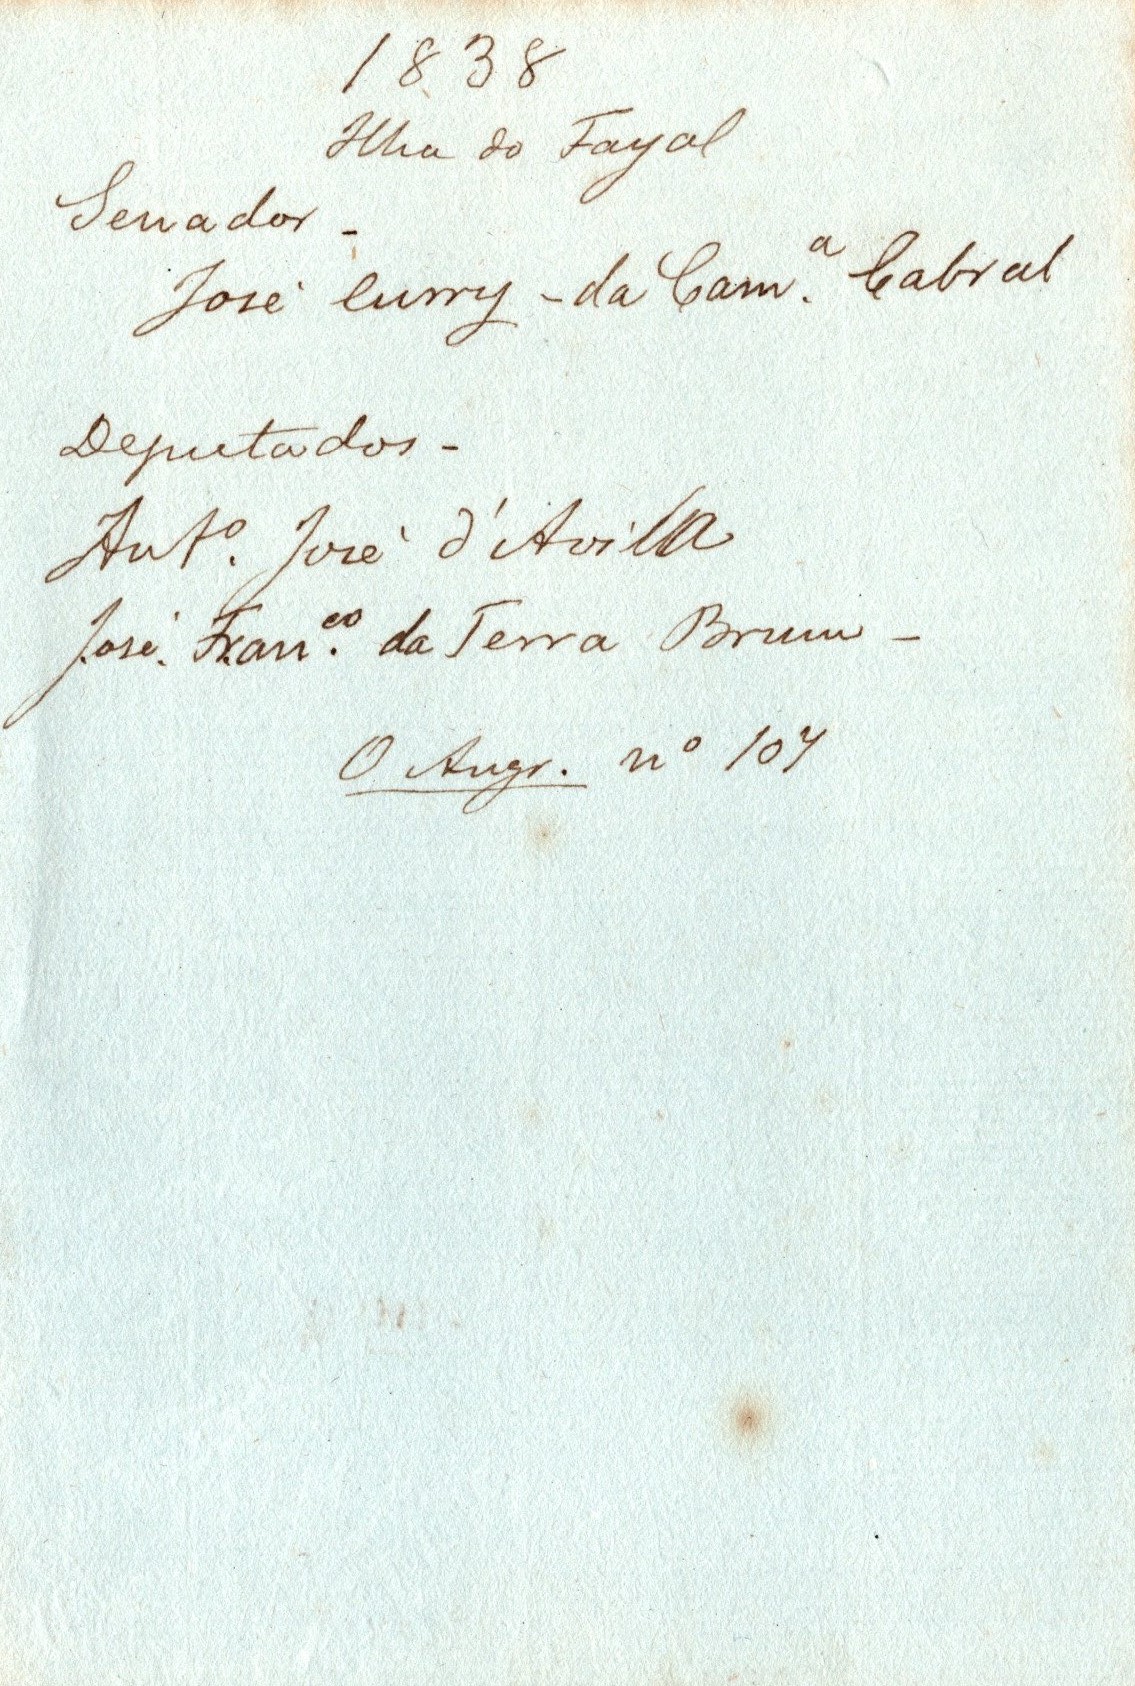 1838
Ilha do Fayal
Senador -
José Curry - da Cam.ª Cabral
Deputados -
Ant.º José d'Avilla
José Fran.co da Terra Brum -
O Angr. nº 107